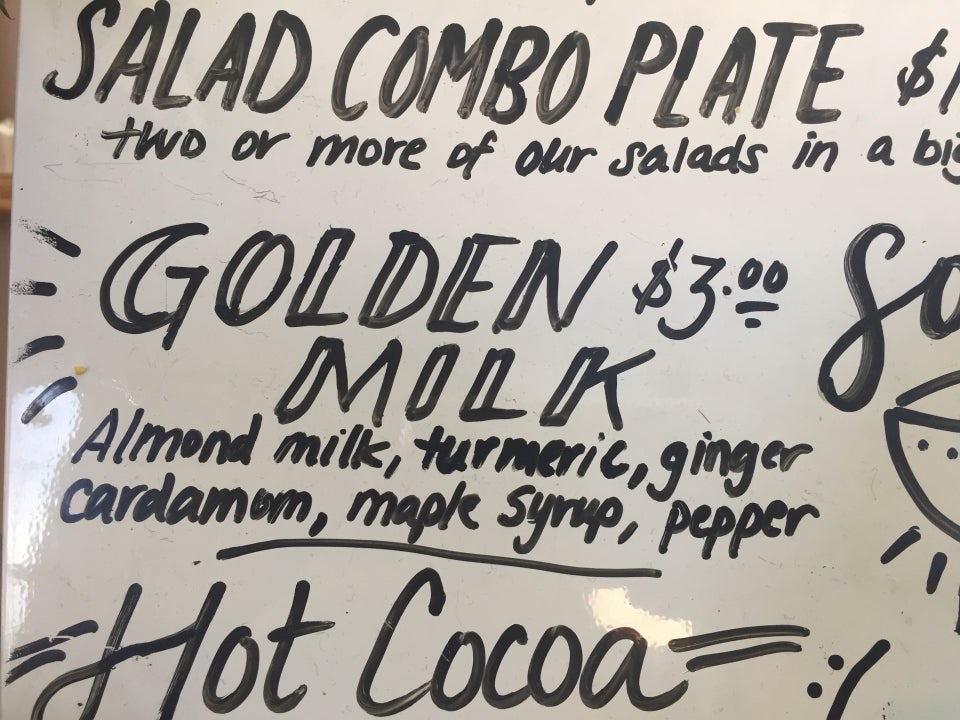 SALAD COMBO PLATE $1
two or more of our salads in a big
GOLDEN $3.00
MILK
Almond milk, turmeric, ginger
cardamom, maple syrup, pepper
Hot Cocoa